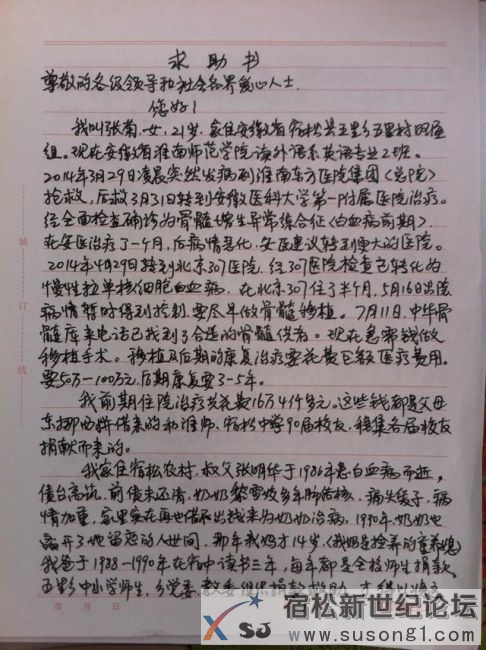 求助书
尊敬的各级领导和社会各界爱心人士.
您好!
我叫张菊,女,21岁,家住安徽省宿松县五里乡五里村四屋
组。现在安徽省淮南师范学院读外语系英语专业2班。
2014年3月29日凌晨突然发病到淮南东方医院集团(总院)
抢救,后救3月31日转到安徽医科大学第一附属医院治疗。
经全面检查确诊为骨髓增生异常综合征(白血病前期)
在安医治疗了一个月,后病情恶化,安医建议转到更大的医院。
2014年4月29日转到北京307医院,经307医院检查已转化为
慢性粒单核细胞白血病,在北京307住了半个月,5月16日出院
病情暂时得到控制,要尽早做骨髓移植。7月11日,中华骨
髓库来电话已找到了合适的骨髓供者。现在急需钱做
移植手术。移植及后期的康复治疗要花费巨额医疗费用。
要50万—100万元,后期康复要3-5年。
我前期住院治疗共花费16万4仟多元。这些钱都是父母
东挪西拼借来的和淮师、宿松中学90届校友,及各届校友
捐献而来的。
我家住宿松农村,叔父张明华于1986年患白血病而逝,
债台高筑,前债未还清,奶奶黎雪姣多年肺结核,病失爱子,病
情加重,家里实在再也借不出钱来为奶奶治病,1990年,奶奶也
离开了她留恋的人世间,那年我妈才14岁,(我妈是捡养的童养媳)
我爸于1988—1990年在宿中读书三年,每年都是全校师生捐款
五里乡中小学师生,乡党委,
装
订
线
年 月 日
XSJ
宿松新世纪论坛
www.susong1.com